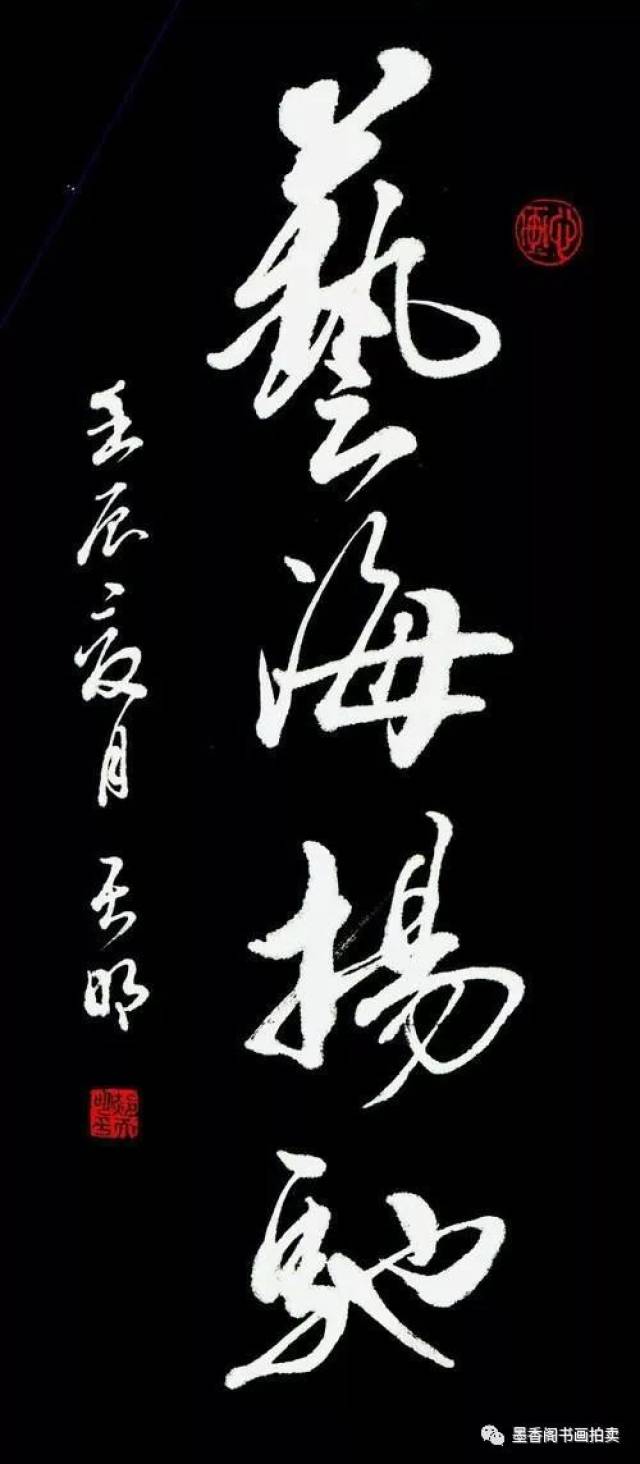 藝海揚馳
壬辰二月 天明
墨香阁书画拍卖